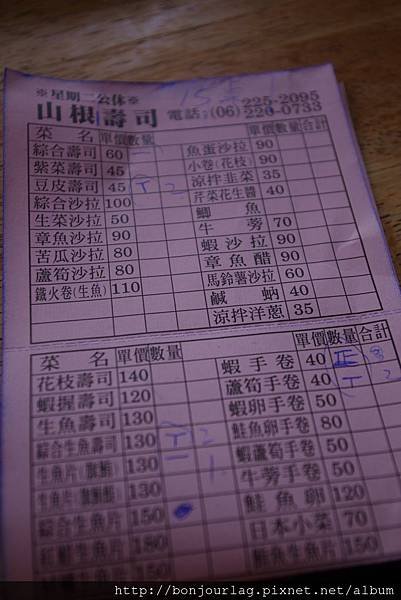 ※星期二公休※
山根壽司 電話：(06) 225-2095
220-0733
菜名 單價 數量
綜合壽司 60 一
紫菜壽司 45
豆皮壽司 45 T 2
綜合沙拉 100
生菜沙拉 50
章魚沙拉 90
苦瓜沙拉 80
蘆筍沙拉 80
鐵火卷(生魚) 110
單價 數量 合計
魚蛋沙拉 90
小卷(花枝) 90
涼拌韭菜 35
芹菜花生醬 40
鯽魚
牛蒡 70
蝦沙拉 90
章魚醋 90
馬鈴薯沙拉 60
鹹蚋 40
涼拌洋蔥 35
菜名 單價 數量
花枝壽司 140
蝦握壽司 120
生魚壽司 130
綜合生魚壽司 130 T 2
生魚片(旗魚) 130 一 1
130
綜合生魚片 150
紅魽生魚片 180
單價 數量 合計
蝦手卷 40 正 8
蘆筍手卷 40 T 2
蝦卵手卷 50
鮭魚卵手卷 80
蝦蘆筍手卷 50
牛蒡手卷 50
鮭魚卵 120
日本小菜 70
鮭魚生魚片 150
http://bonjourlag.pixnet.net/album